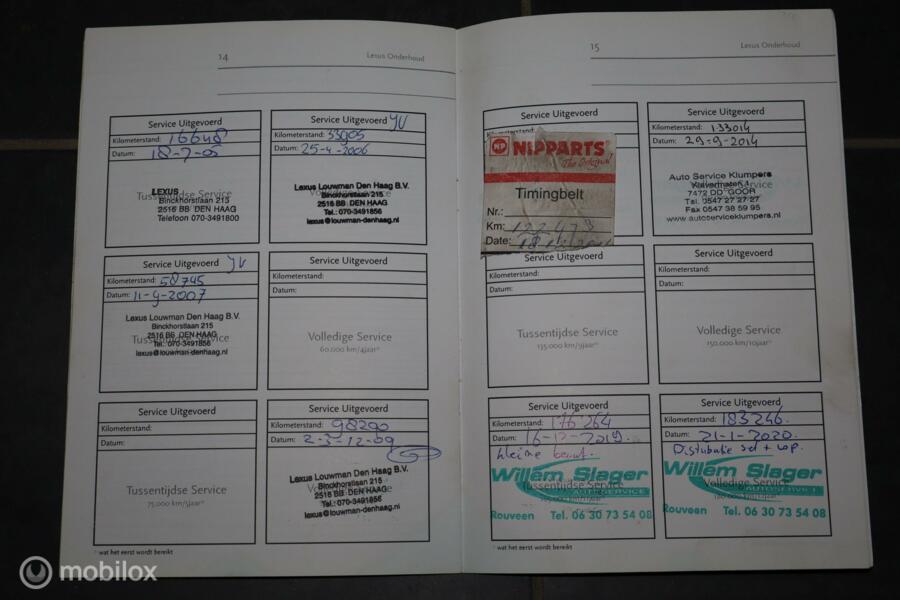 14
Lexus Onderhoud
Service Uitgevoerd
Kilometerstand: 16648
Datum: 18-7-05
Tussentijdse Service
LEXUS
Binckhorstlaan 213
2516 BB DEN HAAG
Telefoon 070-3491800
Service Uitgevoerd
Kilometerstand: 33905
Datum: 25-4-2006
Lexus Louwman Den Haag B.V.
Binckhorstlaan 215
2516 BB DEN HAAG
Tel.: 070-3491856
lexus@louwman-denhaag.nl
Service Uitgevoerd
Kilometerstand: 58745
Datum: 11-9-2007
Lexus Louwman Den Haag B.V.
Binckhorstlaan 215
2516 BB DEN HAAG
Tussentijdse Service
Tel.: 070-3491856
lexus@louwman-denhaag.nl
Service Uitgevoerd
Kilometerstand:
Datum:
Volledige Service
60.000 km/4jaar
Service Uitgevoerd
Kilometerstand:
Datum:
Tussentijdse Service
75.000 km/5jaar
Service Uitgevoerd
Kilometerstand: 98200
Datum:
Lexus Louwman Den Haag B.V.
Binckhorstlaan 215
2516 BB DEN HAAG
Tel.: 070-3491856
lexus@louwman-denhaag.nl
wat het eerst wordt bereikt
15
Lexus Onderhoud
Service Uitgevoerd
NP NIPPARTS
The Original
Timingbelt
Nr.:
Km: 122473
Date:
Service Uitgevoerd
Kilometerstand: 133014
Datum: 29-9-2014
Auto Service Klumpers
7472 DD GOOR
Tel. 0547 27 27 27
Fax 0547 38 59 95
www.autoserviceklumpers.nl
Service Uitgevoerd
Kilometerstand:
Datum:
Tussentijdse Service
135.000 km/9jaar
Service Uitgevoerd
Kilometerstand:
Datum:
Volledige Service
150.000 km/10jaar
Service Uitgevoerd
Kilometerstand: 176264
Datum: 16-12-2019.
kleine beurt.
Willem Slager
Tussentijdse Service
AUTOSERVICE
Rouveen Tel. 06 30 73 54 08
Service Uitgevoerd
Kilometerstand: 183246
Datum: 21-1-2020.
Distributie set + wp.
Willem Slager
AUTOSERVICE
Rouveen Tel. 06 30 73 54 08
wat het eerst wordt bereikt
mobilox